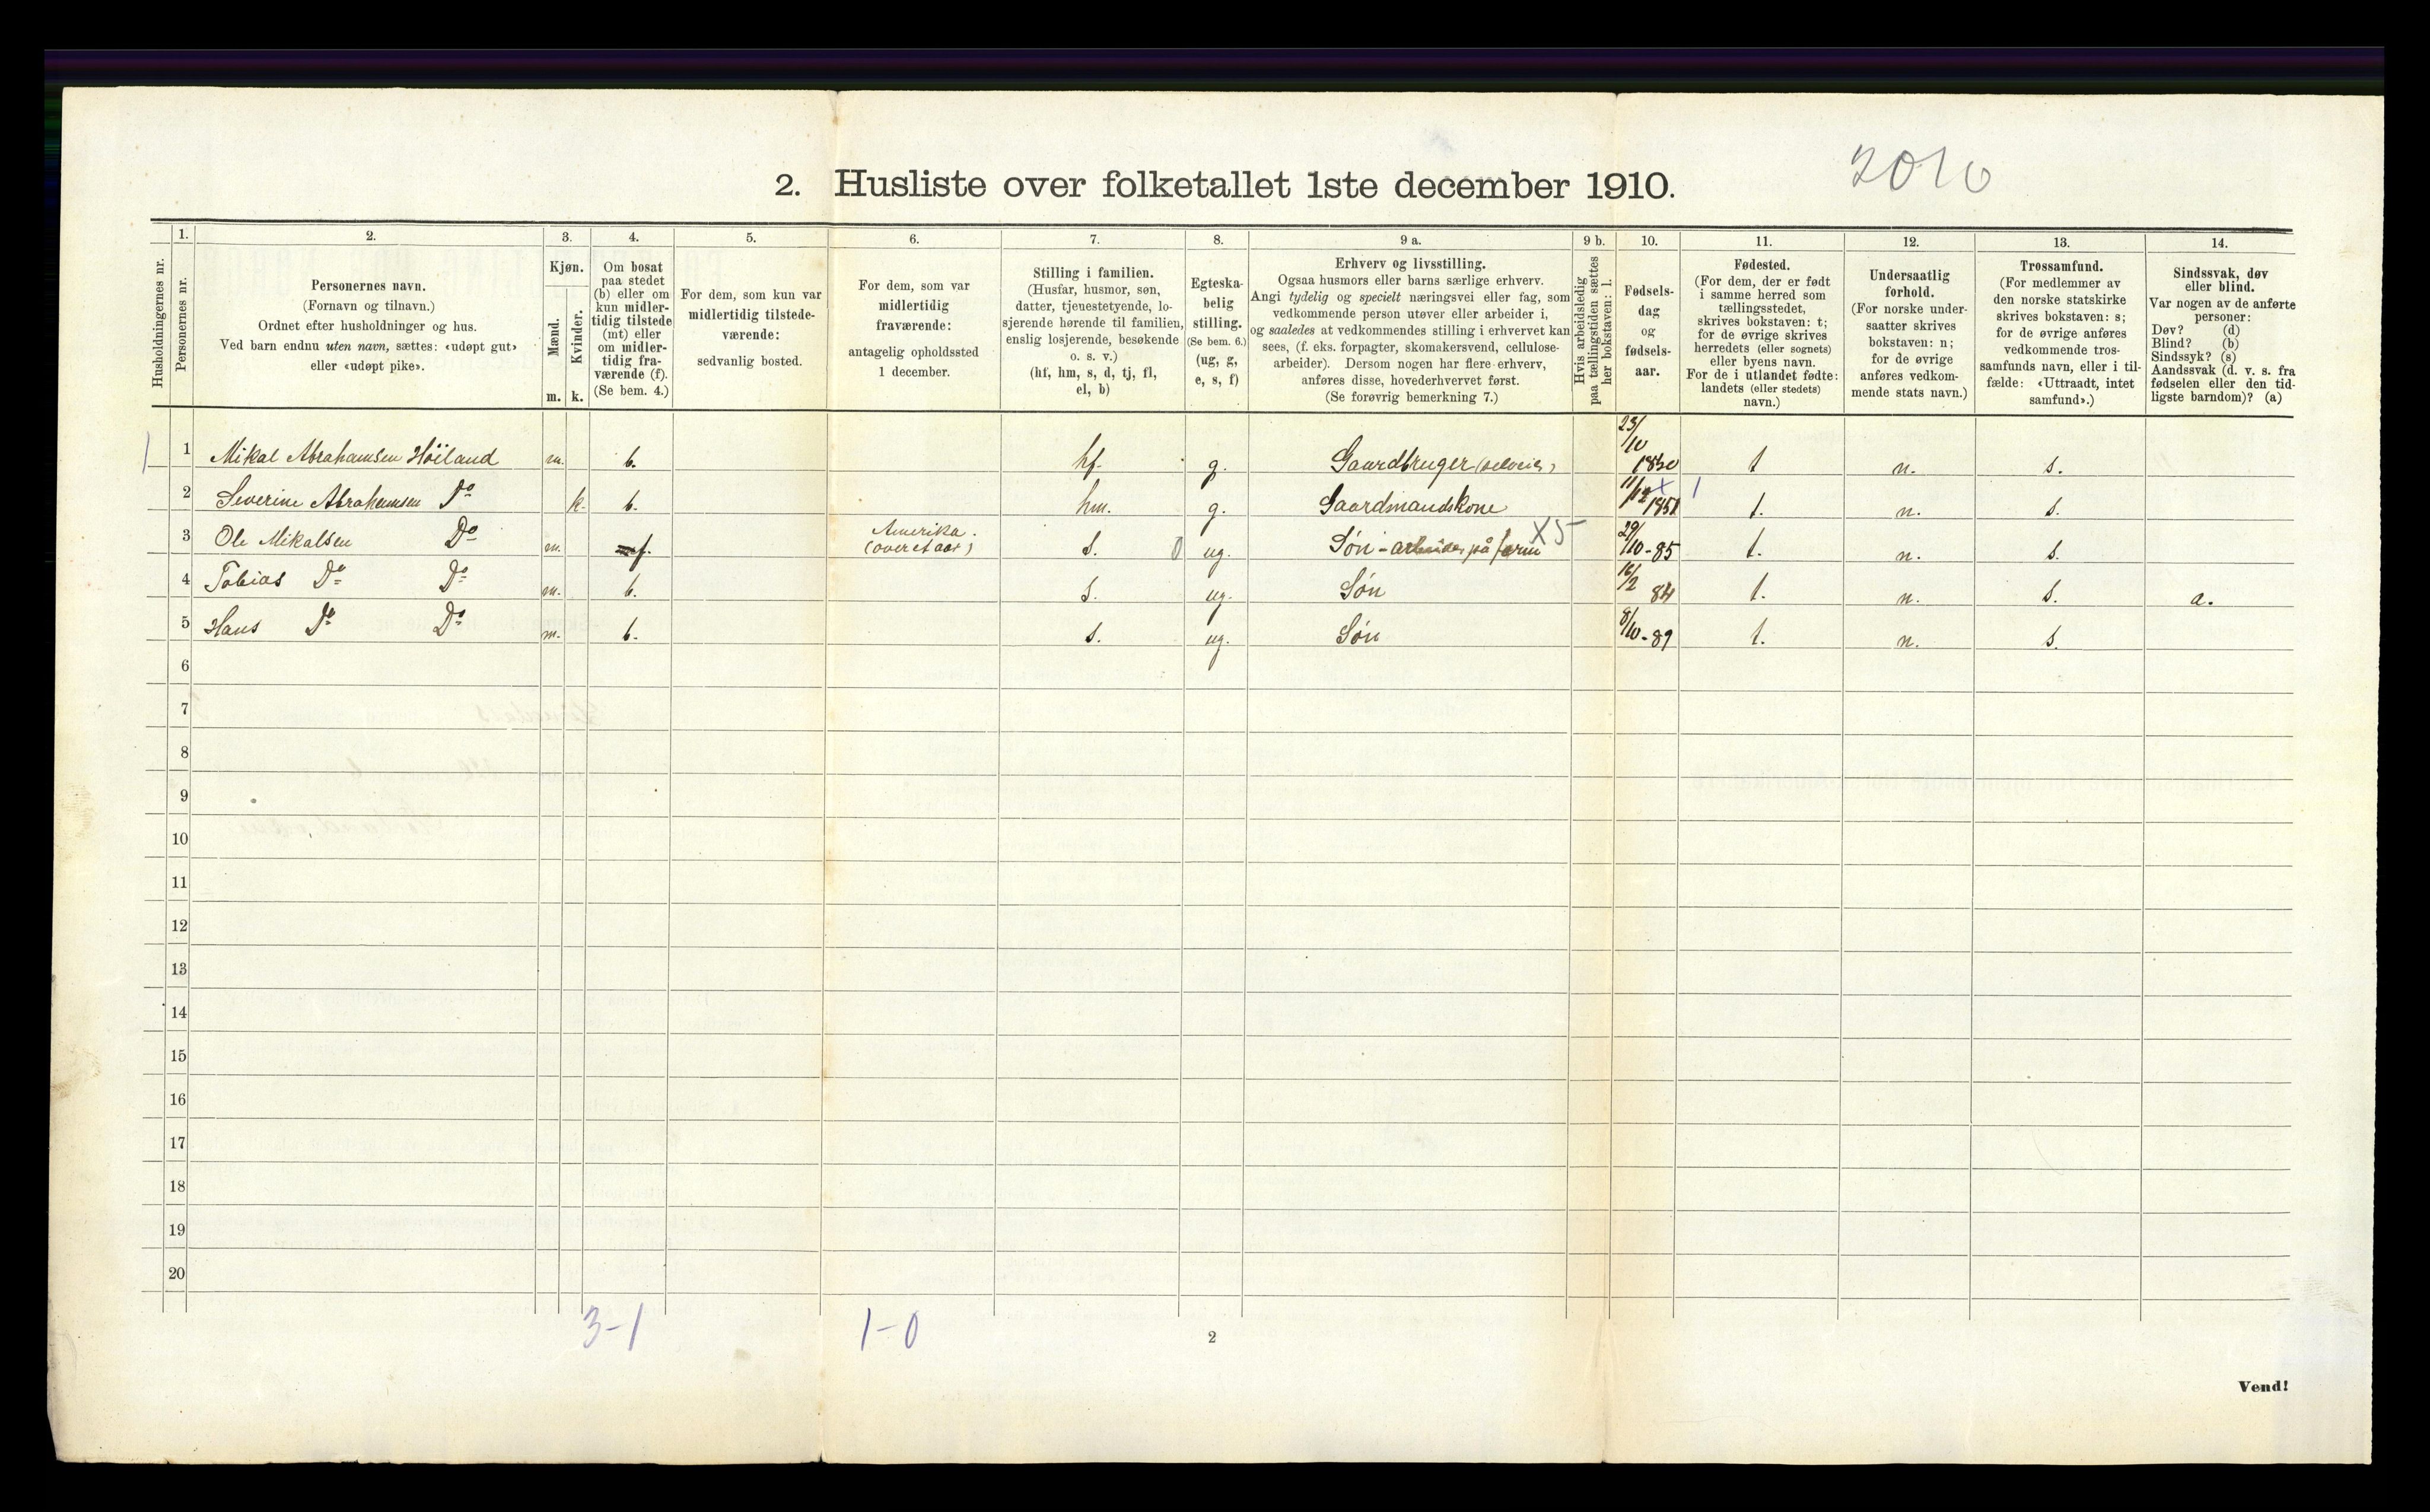 2010
2. Husliste over folketallet 1ste december 1910.
Husholdningernes nr.
1.
Personernes nr.
2.
Personernes navn.
(Fornavn og tilnavn.)
Ordnet efter husholdninger og hus.
Ved barn endnu uten navn, sættes: «udøpt gut»
eller «udøpt pike».
3.
Kjøn.
Mænd.
Kvinder.
m. k.
4.
Om bosat
paa stedet
(b) eller om
kun midler-
tidig tilstede
(mt) eller
om midler-
tidig fra-
værende (f).
(Se bem. 4.)
5.
For dem, som kun var
midlertidig tilstede-
værende:
sedvanlig bosted.
6.
For dem, som var
midlertidig
fraværende:
antagelig opholdssted
1 december.
7.
Stilling i familien.
(Husfar, husmor, søn,
datter, tjenestetyende, lo-
sjerende hørende til familien,
enslig losjerende, besøkende
o. s. v.)
(hf, hm, s, d, tj, fl,
el, b)
8.
Egteska-
belig
stilling.
(Se bem. 6.)
(ug, g,
e, s, f)
9 a.
Erhverv og livsstilling.
Ogsaa husmors eller barns særlige erhverv.
Angi tydelig og specielt næringsvei eller fag, som
vedkommende person utøver eller arbeider i,
og saaledes at vedkommendes stilling i erhvervet kan
sees, (f. eks. forpagter, skomakersvend, cellulose-
arbeider). Dersom nogen har flere erhverv,
anføres disse, hovederhvervet først.
(Se forøvrig bemerkning 7.)
9 b.
Hvis arbeidsledig
paa tællingstiden sættes
her bokstaven: l.
10.
Fødsels-
dag
og
fødsels-
aar.
11.
Fødested.
(For dem, der er født
i samme herred som
tællingsstedet,
skrives bokstaven: t;
for de øvrige skrives
herredets (eller sognets)
eller byens navn.
For de i utlandet fødte:
landets (eller stedets)
navn.)
12.
Undersaatlig
forhold.
(For norske under-
saatter skrives
bokstaven: n;
for de øvrige
anføres vedkom-
mende stats navn.)
13.
Trossamfund.
(For medlemmer av
den norske statskirke
skrives bokstaven: s;
for de øvrige anføres
vedkommende tros-
samfunds navn, eller i til-
fælde: «Uttraadt, intet
samfund».)
14.
Sindssvak, døv
eller blind.
Var nogen av de anførte
personer:
Døv? (d)
Blind? (b)
Sindssyk? (s)
Aandssvak (d. v. s. fra
fødselen eller den tid-
ligste barndom)? (a)
1 1 Mikal Abrahamsen Höiland m. b. hf. g. Gaardbruger (selveier) 23/10 1850 t n. s.
2 Severine Abrahamsen Do k. b. hm. g. Gaardmandskone 11/12 1851 t. n. s.
3 Ole Mikalsen Do m. f. Amerika. (over et aar) s. 0 ug. Søn - arbeider på farm X5 29/10-85 t. n. s.
4 Tobias Do Do m. b. s. ug. Søn 16/2 84 t. n. s. a.
5 Hans Do Do m. b. s. ug. Søn 8/10-89 t. n. s.
6
7
8
9
10
11
12
13
14
15
16
17
18
19
20
3-1 1-0
2
Vend!